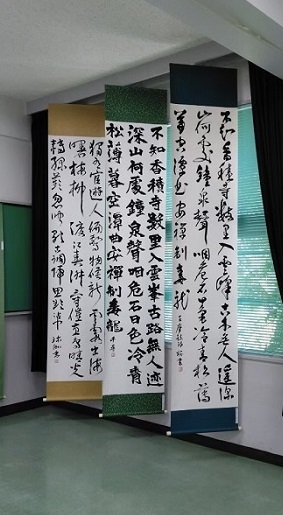 不知香積寺數里入雲峰古木無人逕深
山何處鐘泉聲咽危石日色冷青松薄
暮空潭曲安禪制毒龍
不知香積寺數里入雲峯古路無人迹
深山何處鐘泉聲咽危石日色冷青
松薄暮空潭曲安禪制毒龍
獨有宦遊人偏驚物候新雲霞出海
曙梅柳渡江春淑氣催黃鳥晴光
轉綠蘋忽聞歌古調歸思欲沾巾